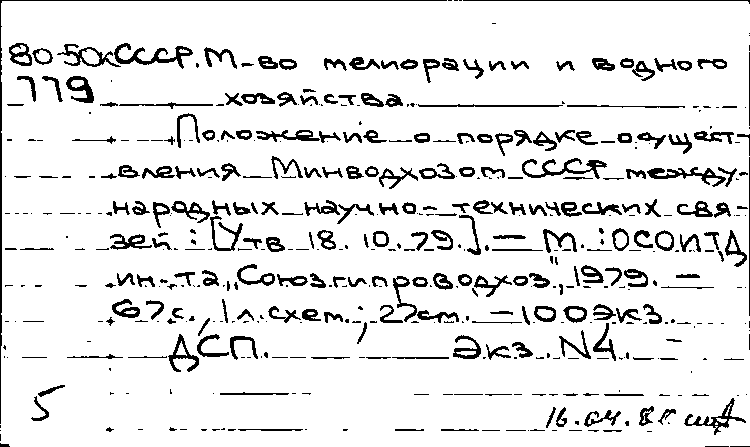 80-50к СССР. М-во мелиорации и водного
779 хозяйства.
Положение о порядке осущест-
вления Минводхозом СССР между-
народных научно-технических свя-
зей : [Утв 18.10.79.]. — М. : ОСОИТД
ин-та „Союзгипроводхоз", 1979. —
67 с., 1 л. схем. ; 27 см. — 100 экз.
ДСП. Экз. N4.
5
16.04.